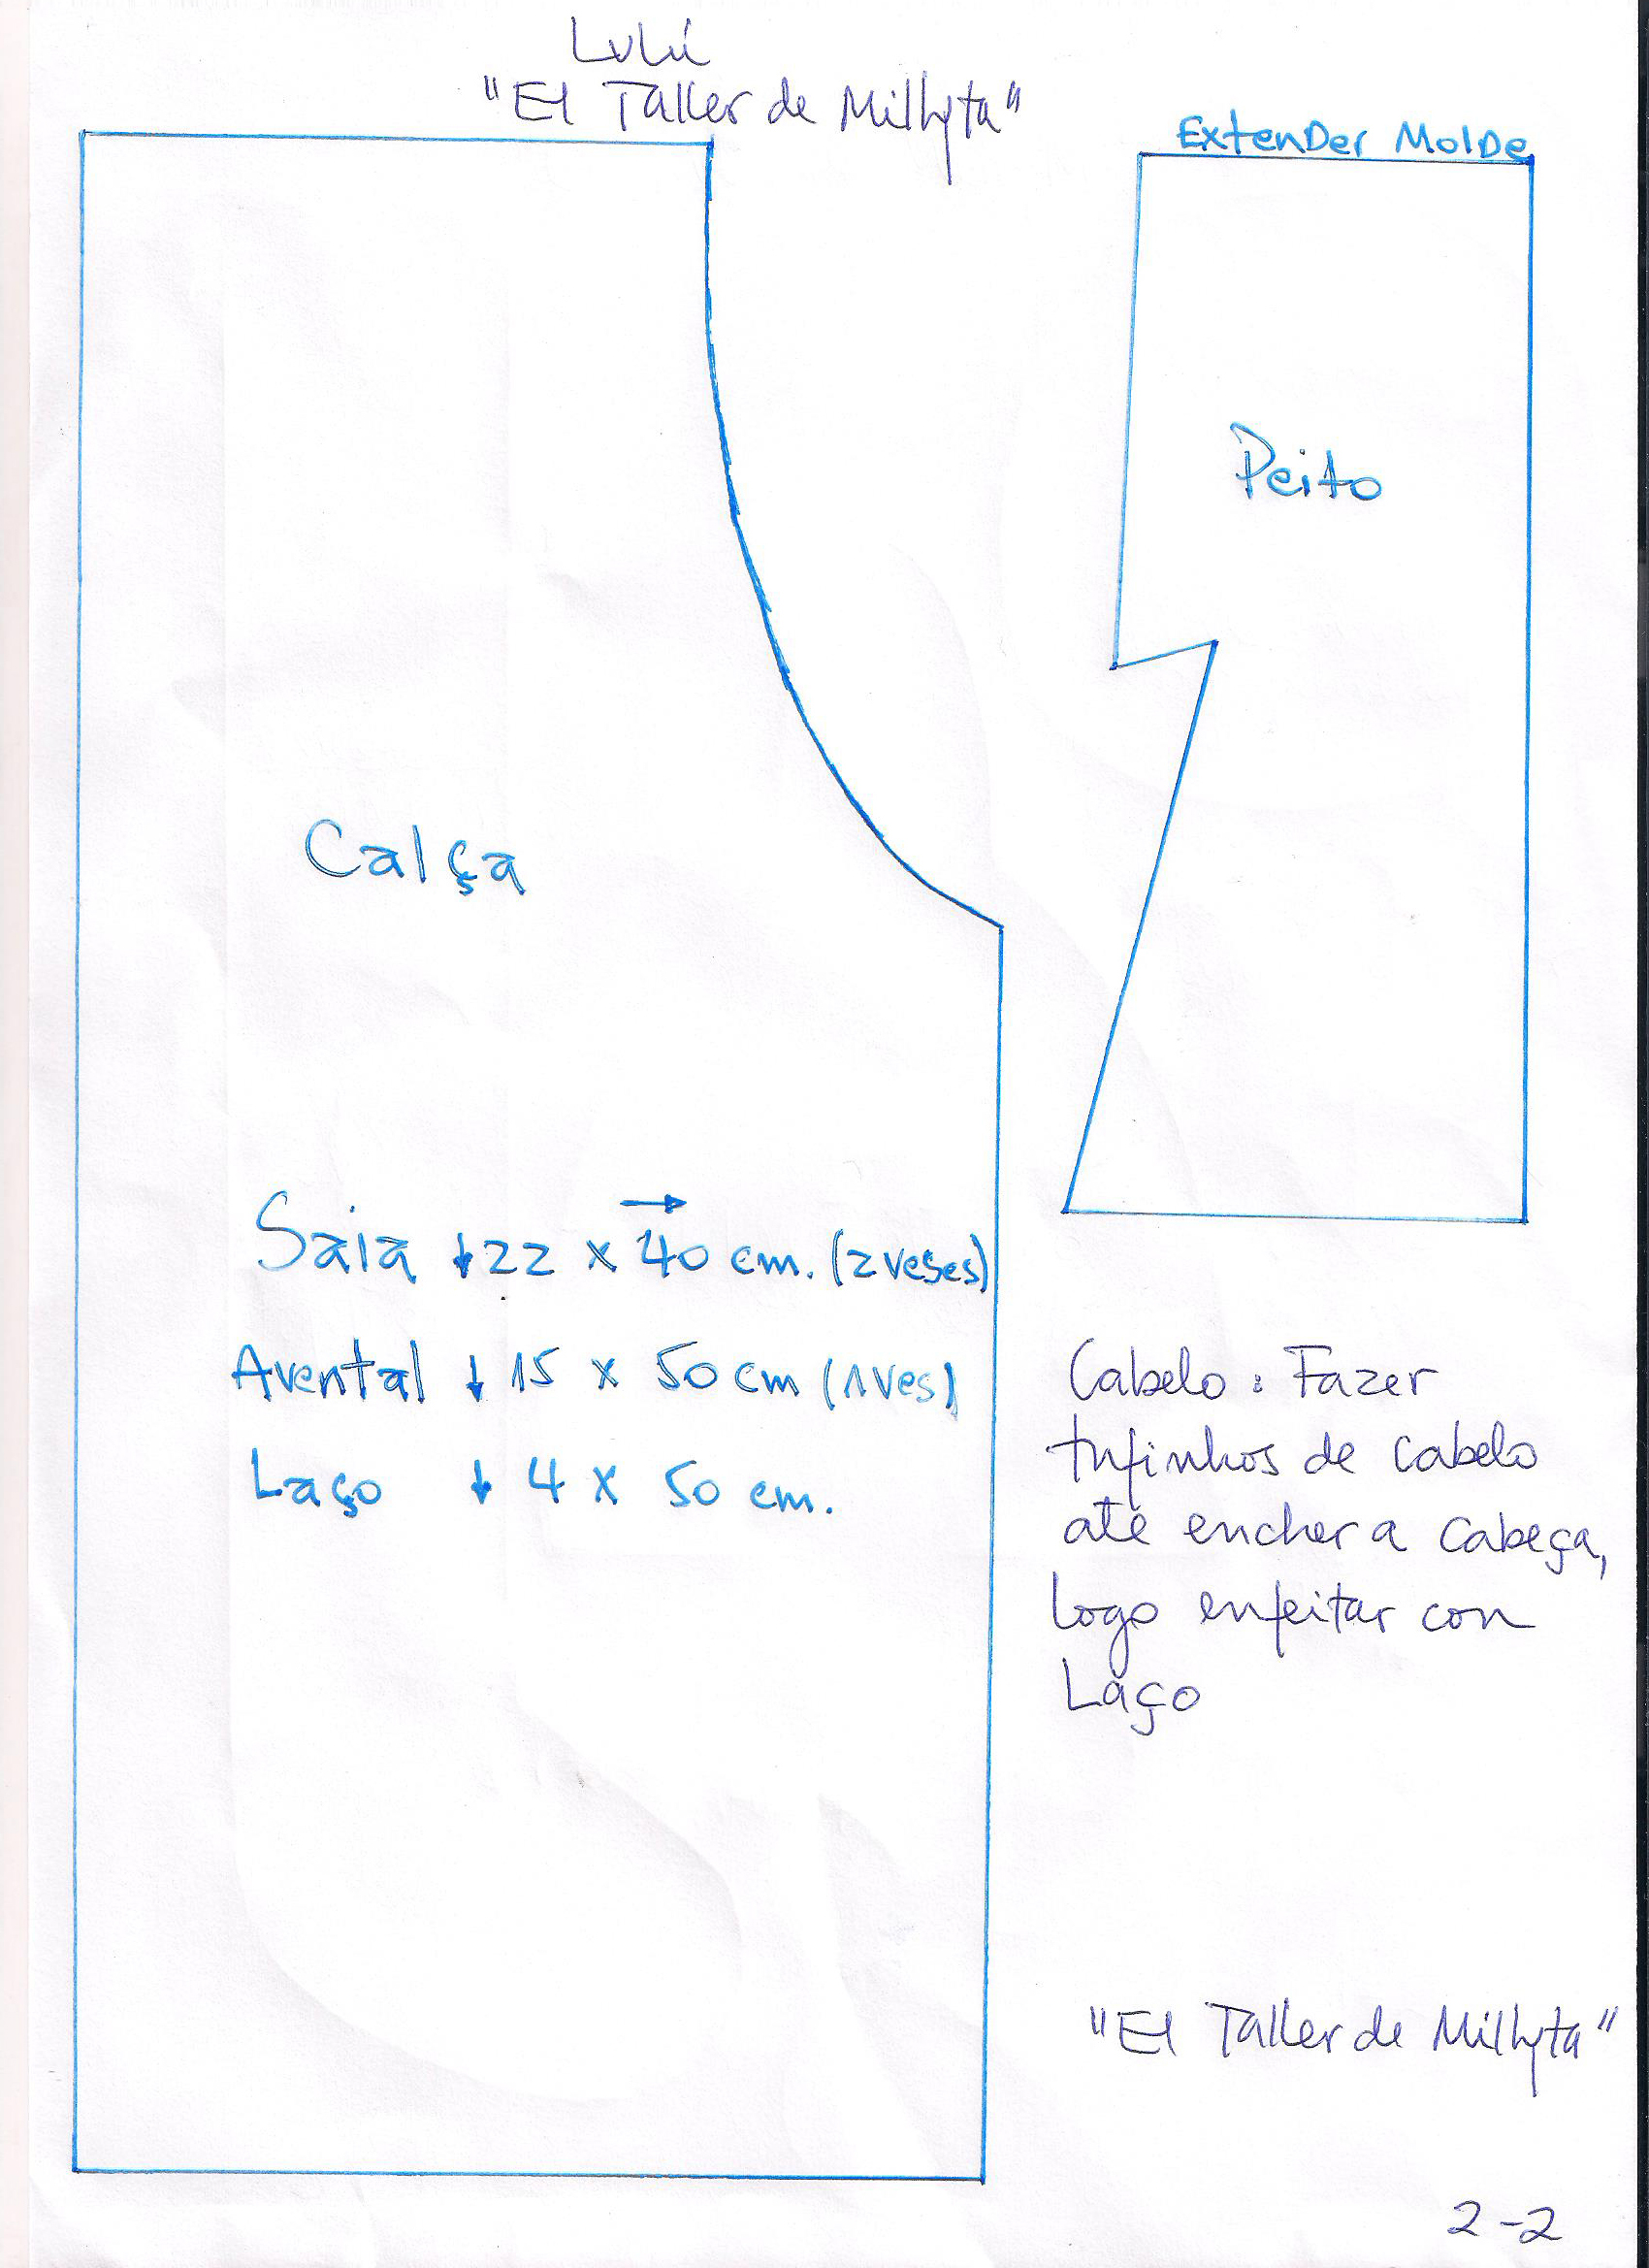 Lulú
"El Taller de Millyta"
Extender Molde
Peito
Calça
Saia ↓22 x 40 cm. (2 veses)
→
Avental ↓ 15 x 50 cm (1 ves)
Laço ↓ 4 x 50 cm.
Cabelo : Fazer
tufinhos de cabelo
até encher a cabeça,
logo enfeitar con
Laço
"El Taller de Millyta"
2-2